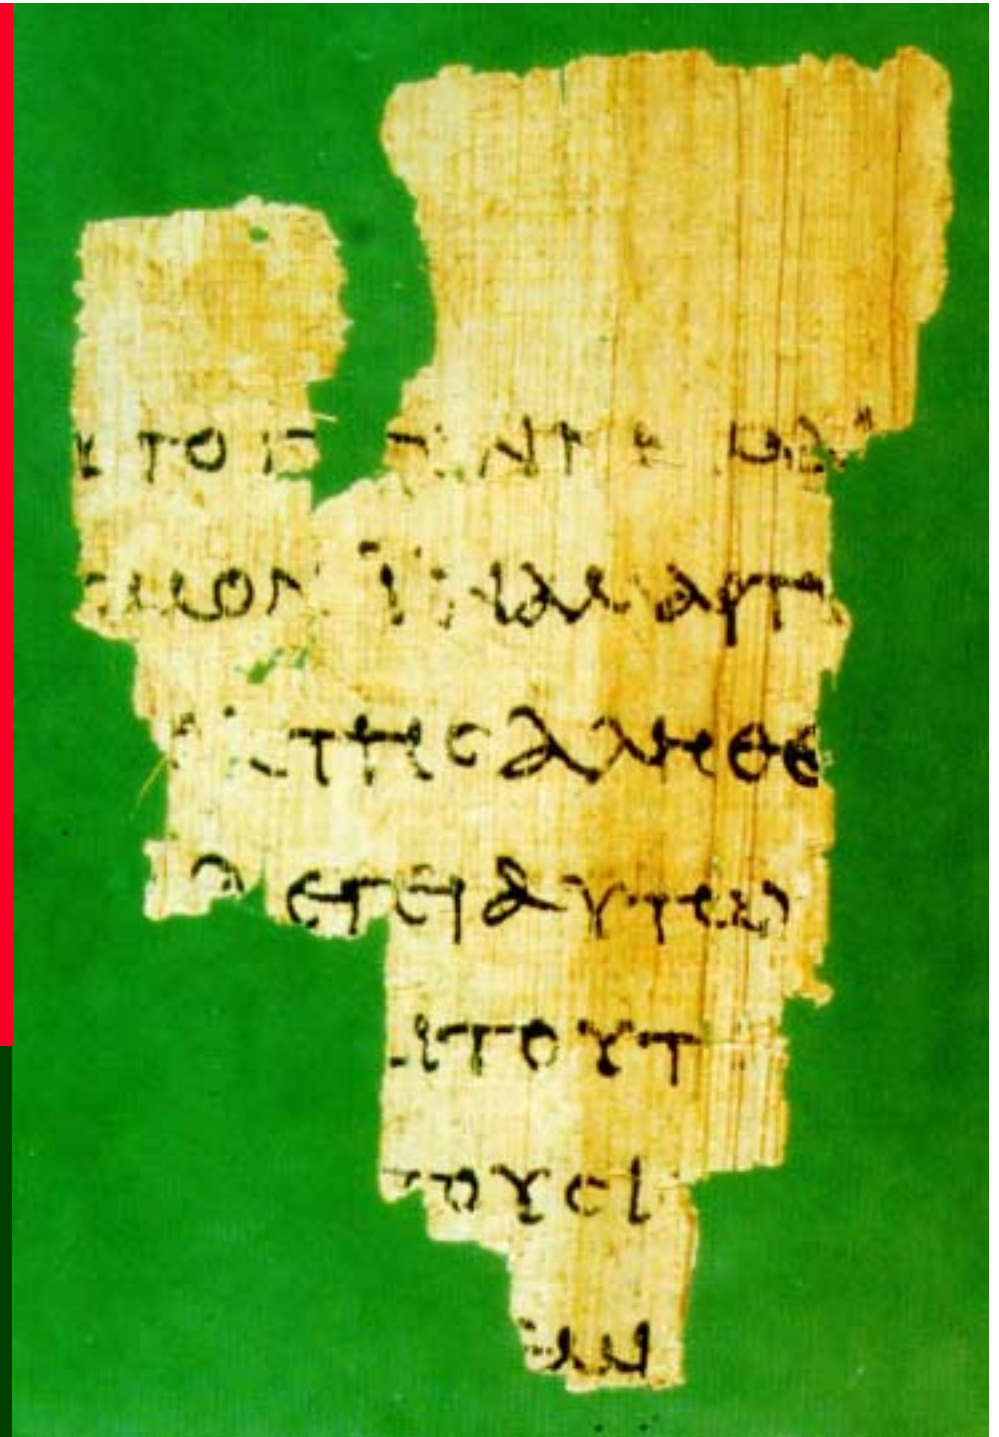 ΤΟ Γ ΓΕΝΝΗΜΑΙ
CΜΟΝ ΙΝΑ ΜΑΡΤΥ
ΤΗC ΑΛΗΘΕ
ΛΕΓΕΙ ΑΥΤΩ
ΑΙ ΤΟΥΤ
ΤΟΥC Ι
ΜΙ